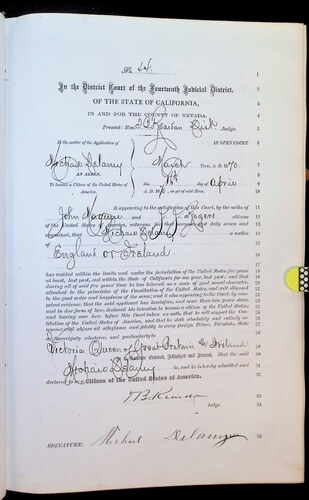 No. 44. 1
In the District Court of the Fourteenth Judicial District, 2
OF THE STATE OF CALIFORNIA, 3
IN AND FOR THE COUNTY OF NEVADA. 4
Present: Hon. Judge. 5
In the matter of the Application of IN OPEN COURT 6
Michael Delaney March Term, A. D. 1870. 7
AN ALIEN, 8
To become a Citizen of the United States of this day of April
America. A. D. 1870, as yet of said Term.
It is appearing to the satisfaction of this Court, by the oaths of
John Maguire and Rogers citizens
of the United States of America, witnesses for that purpose first duly sworn and
examined, that Michael Delaney a native
of
England or Ireland
has resided within the limits and under the jurisdiction of the United States five years
at least, last past, and within the State of California for one year last past; and that
during all of said five years' time he has behaved as a man of good moral character,
attached to the principles of the Constitution of the United States, and well disposed
to the good order and happiness of the same; and it also appearing to the Court, by com-
petent evidence, that the said applicant has heretofore, and more than two years since,
and in due form of law, declared his intention to become a citizen of the United States;
and having now here before this Court taken an oath, that he will support the Con-
stitution of the United States of America, and that he doth absolutely and entirely re-
nounce and abjure all allegiance and fidelity to every foreign Prince, Potentate, State
or Sovereignty whatever, and particularly to
Victoria Queen of Great Britain & Ireland
It is therefore Ordered, Adjudged and Decreed, That the said
Michael Delaney be, and he is hereby admitted and
declared to be a Citizen of the United States of America.
Judge.
SIGNATURE: Michael Delaney 35